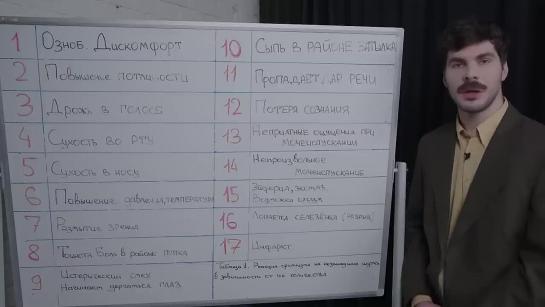 1 Озноб. Дискомфорт
2 Повышение потливости
3 Дрожь в голосе
4 Сухость во рту
5 Сухость в носу
6 Повышение давления, температуры
7 Размытие зрения
8 Тошнота Боль в районе пупка
9 Истерический смех
Начинает дергаться глаз
10 Сыпь в районе затылка
11 Пропадает дар речи
12 Потеря сознания
13 Неприятные ощущения при
мочеиспускании
14 Непроизвольное
мочеиспускание
15
16 Лопается селезёнка (разрыв)
17 Инфаркт
Таблица 1. Реакция организма на
в зависимости от их количества